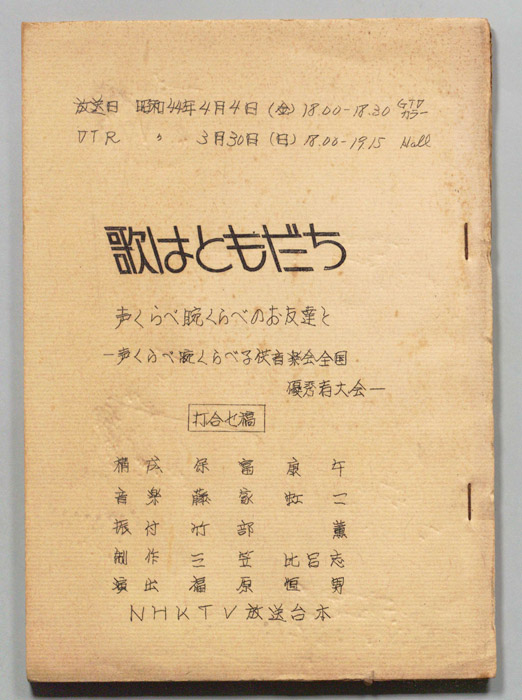 放送日 昭和44年4月4日(金) 18.00-18.30 GTV カラー
VTR 〃 3月30日(日) 18.00-1915 Hall
歌はともだち
声くらべ腕くらべのお友達と
ー声くらべ腕くらべ子供音楽会全国
優秀者大会ー
打合せ稿
構成 保富康午
音楽 藤家虹二
振付 竹部薫
制作 三笠比呂志
演出 福原恒男
NHKTV放送台本